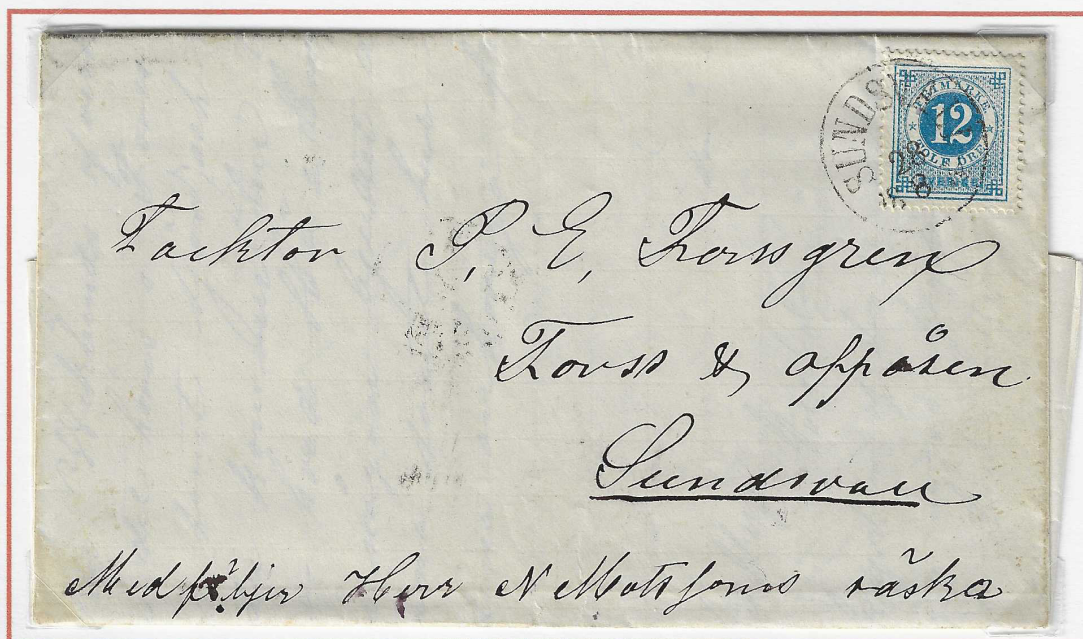 SUNDSV
28
8
FRIMÄRKE
12
TOLF ÖRE
Facktor P, E, Forssgren
Forss & oppåsen
Sundsvall
Medföljer Herr N Matssons väska